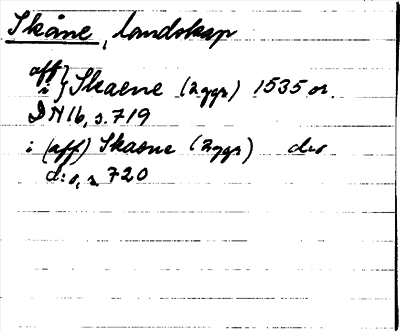 Skåne, landskap
aff } Skaene (2 ggr) 1535 or.
i }
DN 16, s. 719
i (aff) Skaane (2 ggr) dus
d:o, s. 720